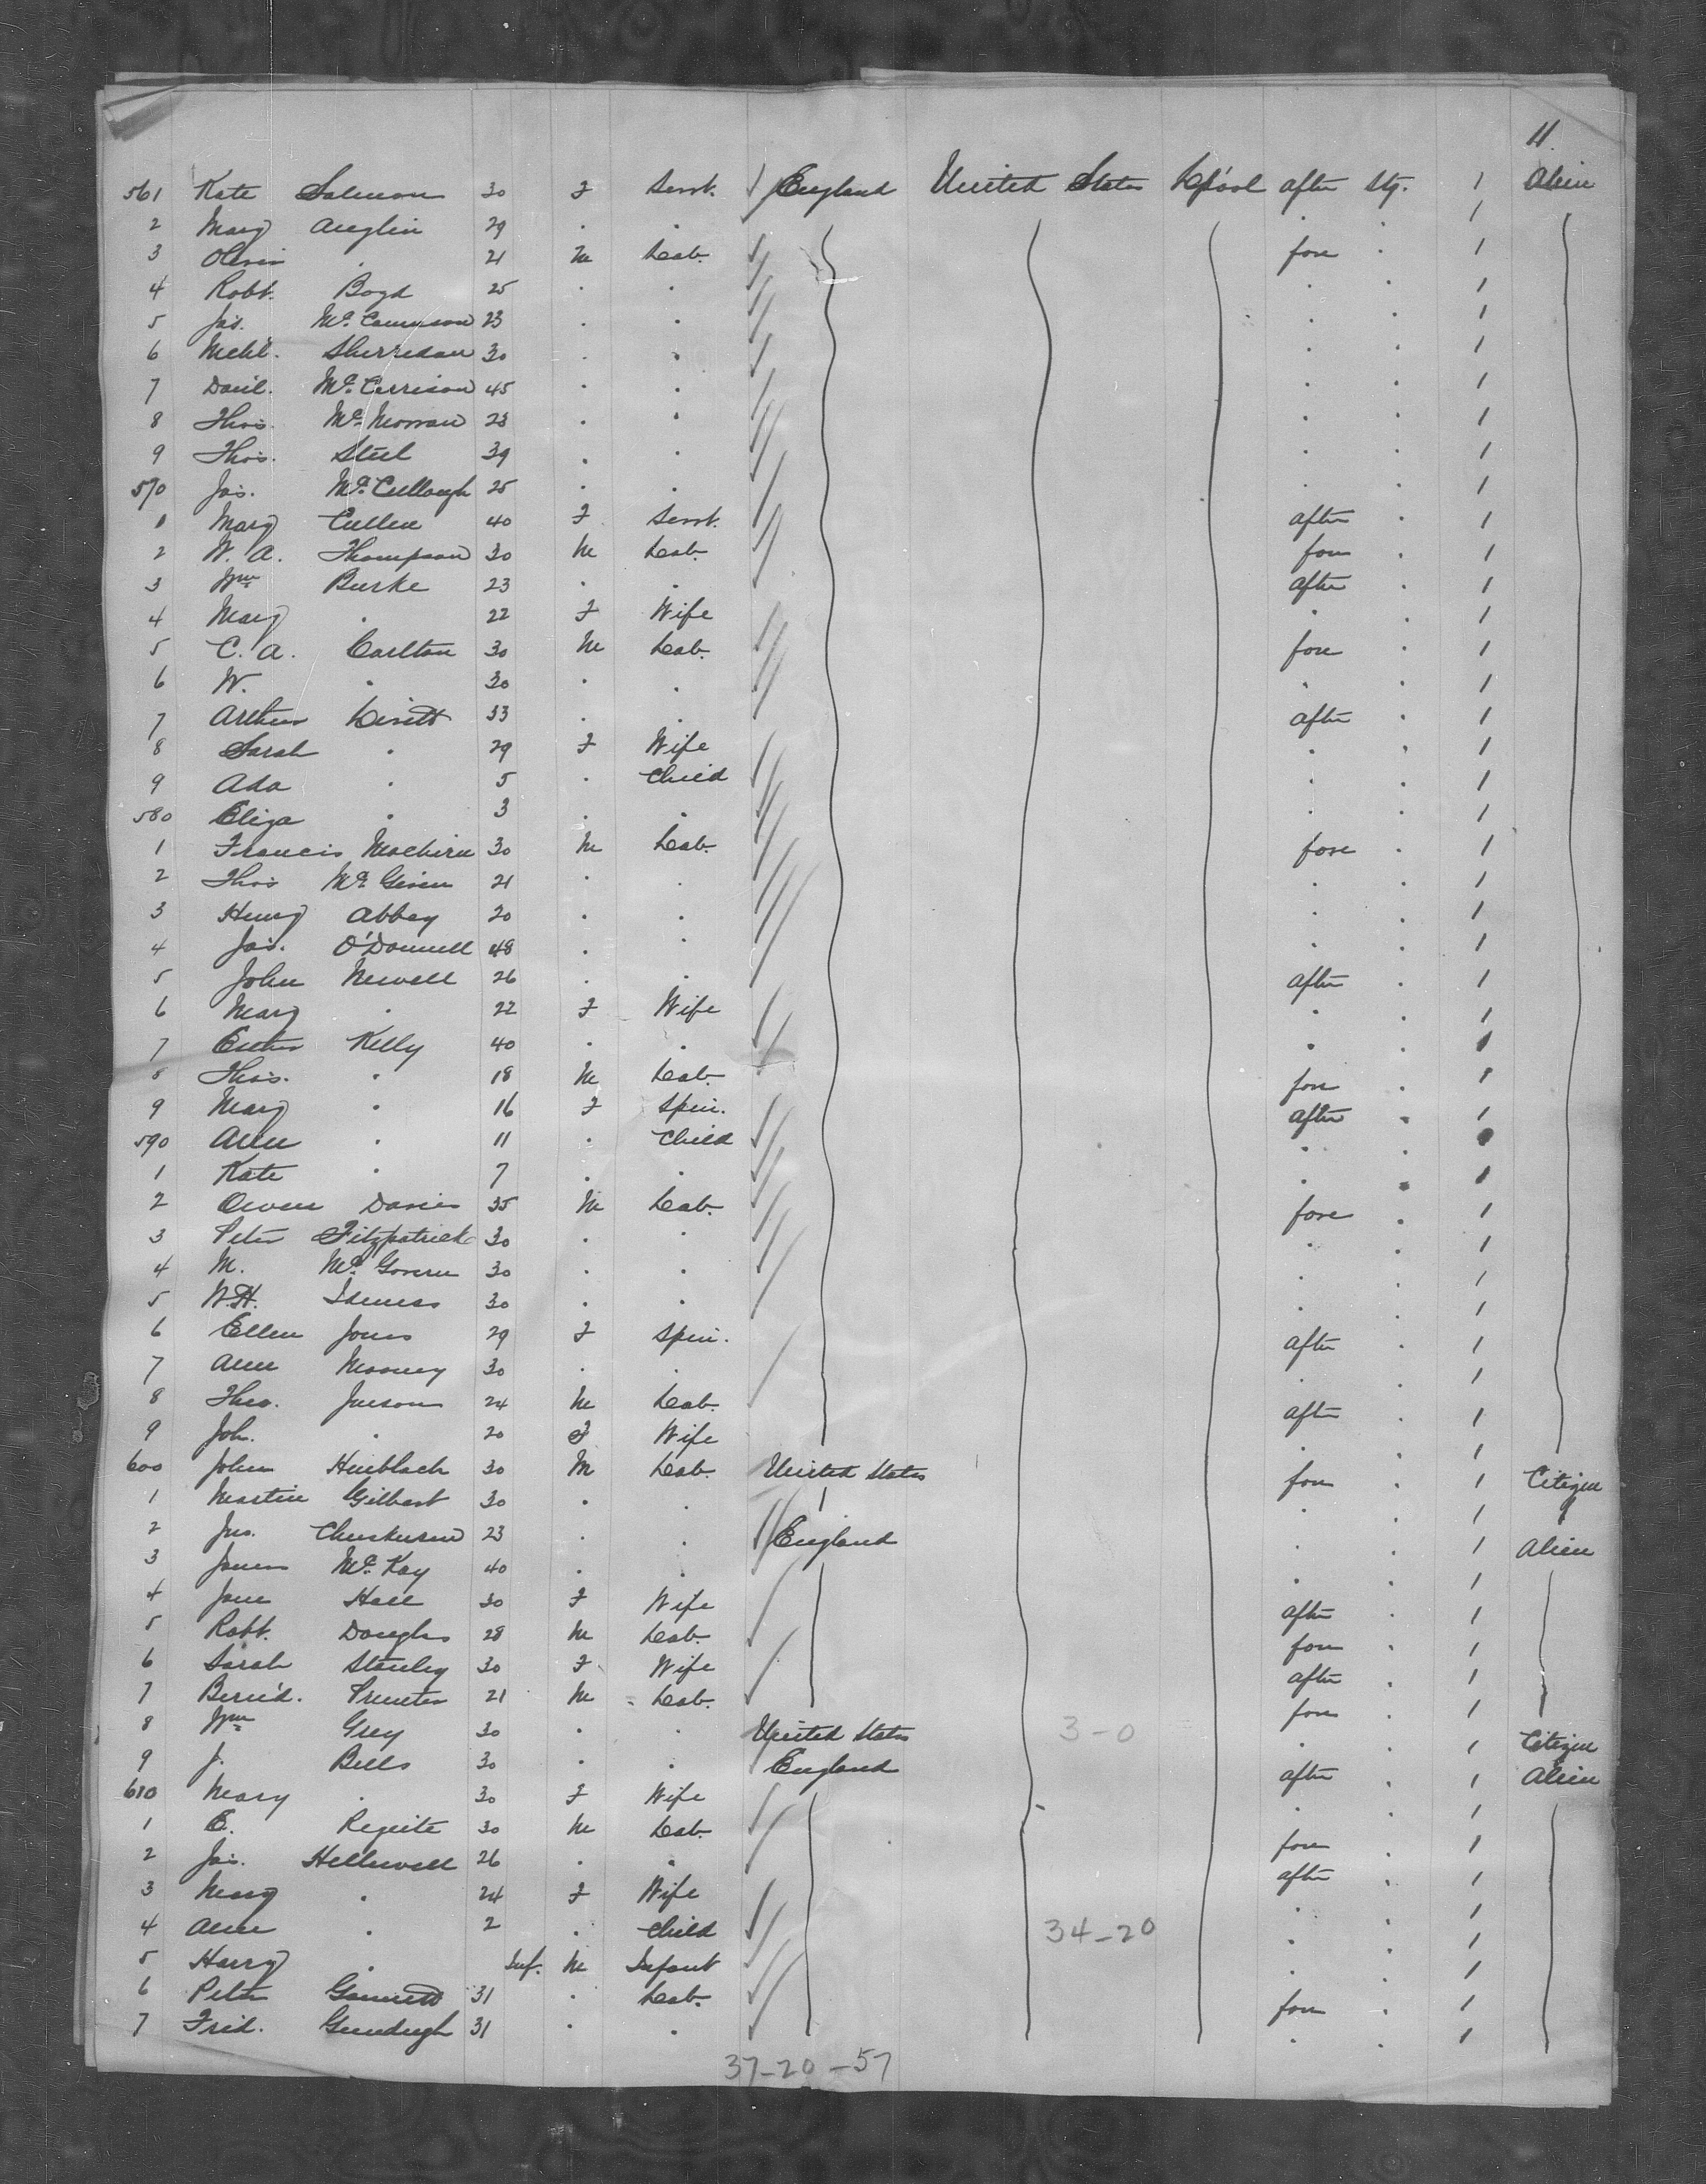 11.
561 Kate Salmon 30 F Servt. England United States L'pool after Stg. 1 Alien
2 Mary Anglin 29 . . 1
3 Oliver . 21 M Lab. fore . 1
4 Robt. Boyd 25 . . . . 1
5 Jas. 23 . . . . 1
6 Michl. Sherredan 30 . . . . 1
7 Danl. Mc. Cerrison 45 . . . . 1
8 Thos. Mc. Morran 28 . . . . 1
9 Thos. Steel 39 . . . . 1
570 Jas. Mc. Cullough 25 . . . . 1
1 Mary Cullen 40 F Servt. after . 1
2 W. A. Thompson 30 M Lab. fore . 1
3 Wm Burke 23 . . after . 1
4 Mary . 22 F Wife . . 1
5 C. A. Carlton 30 M Lab. fore . 1
6 W. . 30 . . . . 1
7 Arthur 33 . . after . 1
8 Sarah . 29 F Wife . . 1
9 Ada . 5 . Child . . 1
580 Eliza . 3 . . . . 1
1 Francis 30 M Lab. fore . 1
2 Thos 21 . . . . 1
3 Henry Abbey 20 . . . . 1
4 Jas. O'Donnell 48 . . . . 1
5 John Newell 26 . . after . 1
6 Mary . 22 F Wife . . 1
7 Esther Kelly 40 . . . . 1
8 Thos. . 18 M Lab. fore . 1
9 Mary . 16 F Spin. after . 1
590 Ann . 11 . Child . . 1
1 Kate . 7 . . . . 1
2 Owen Davies 35 M Lab. fore . 1
3 Peter Fitzpatrick 30 . . . . 1
4 M. Mc. Govern 30 . . . . 1
5 W. H. 30 . . . . 1
6 Ellen Jones 29 F Spin. after . 1
7 Ann Mooney 30 . . . . 1
8 Theo. Juson 24 M Lab. after . 1
9 Joh. . 20 F Wife . . 1
600 John 30 M Lab. United States fore . 1 Citizen
1 Martin Gilbert 30 . . . . 1
2 Jno. 23 . . England . . 1 Alien
3 James Mc. Kay 40 . . . . 1
4 Jane Hall 30 F Wife after . 1
5 Robt. Douglas 28 M Lab. fore . 1
6 Sarah Stanley 30 F Wife after . 1
7 Bern'd. 21 M Lab. fore . 1
8 Wm Grey 30 . . United States 3-0 . . 1 Citizen
9 J. Bells 30 . . England after . 1 Alien
610 Mary . 30 F Wife . . 1
1 E. 30 M Lab. fore . 1
2 Jas. Hellewell 26 . . after . 1
3 Mary . 24 F Wife . . 1
4 Ann . 2 . Child 34-20 . . 1
5 Harry . Inf. M Infant . . 1
6 Peter 31 . Lab. fore . 1
7 Fred. 31 . . . . 1
37-20-57